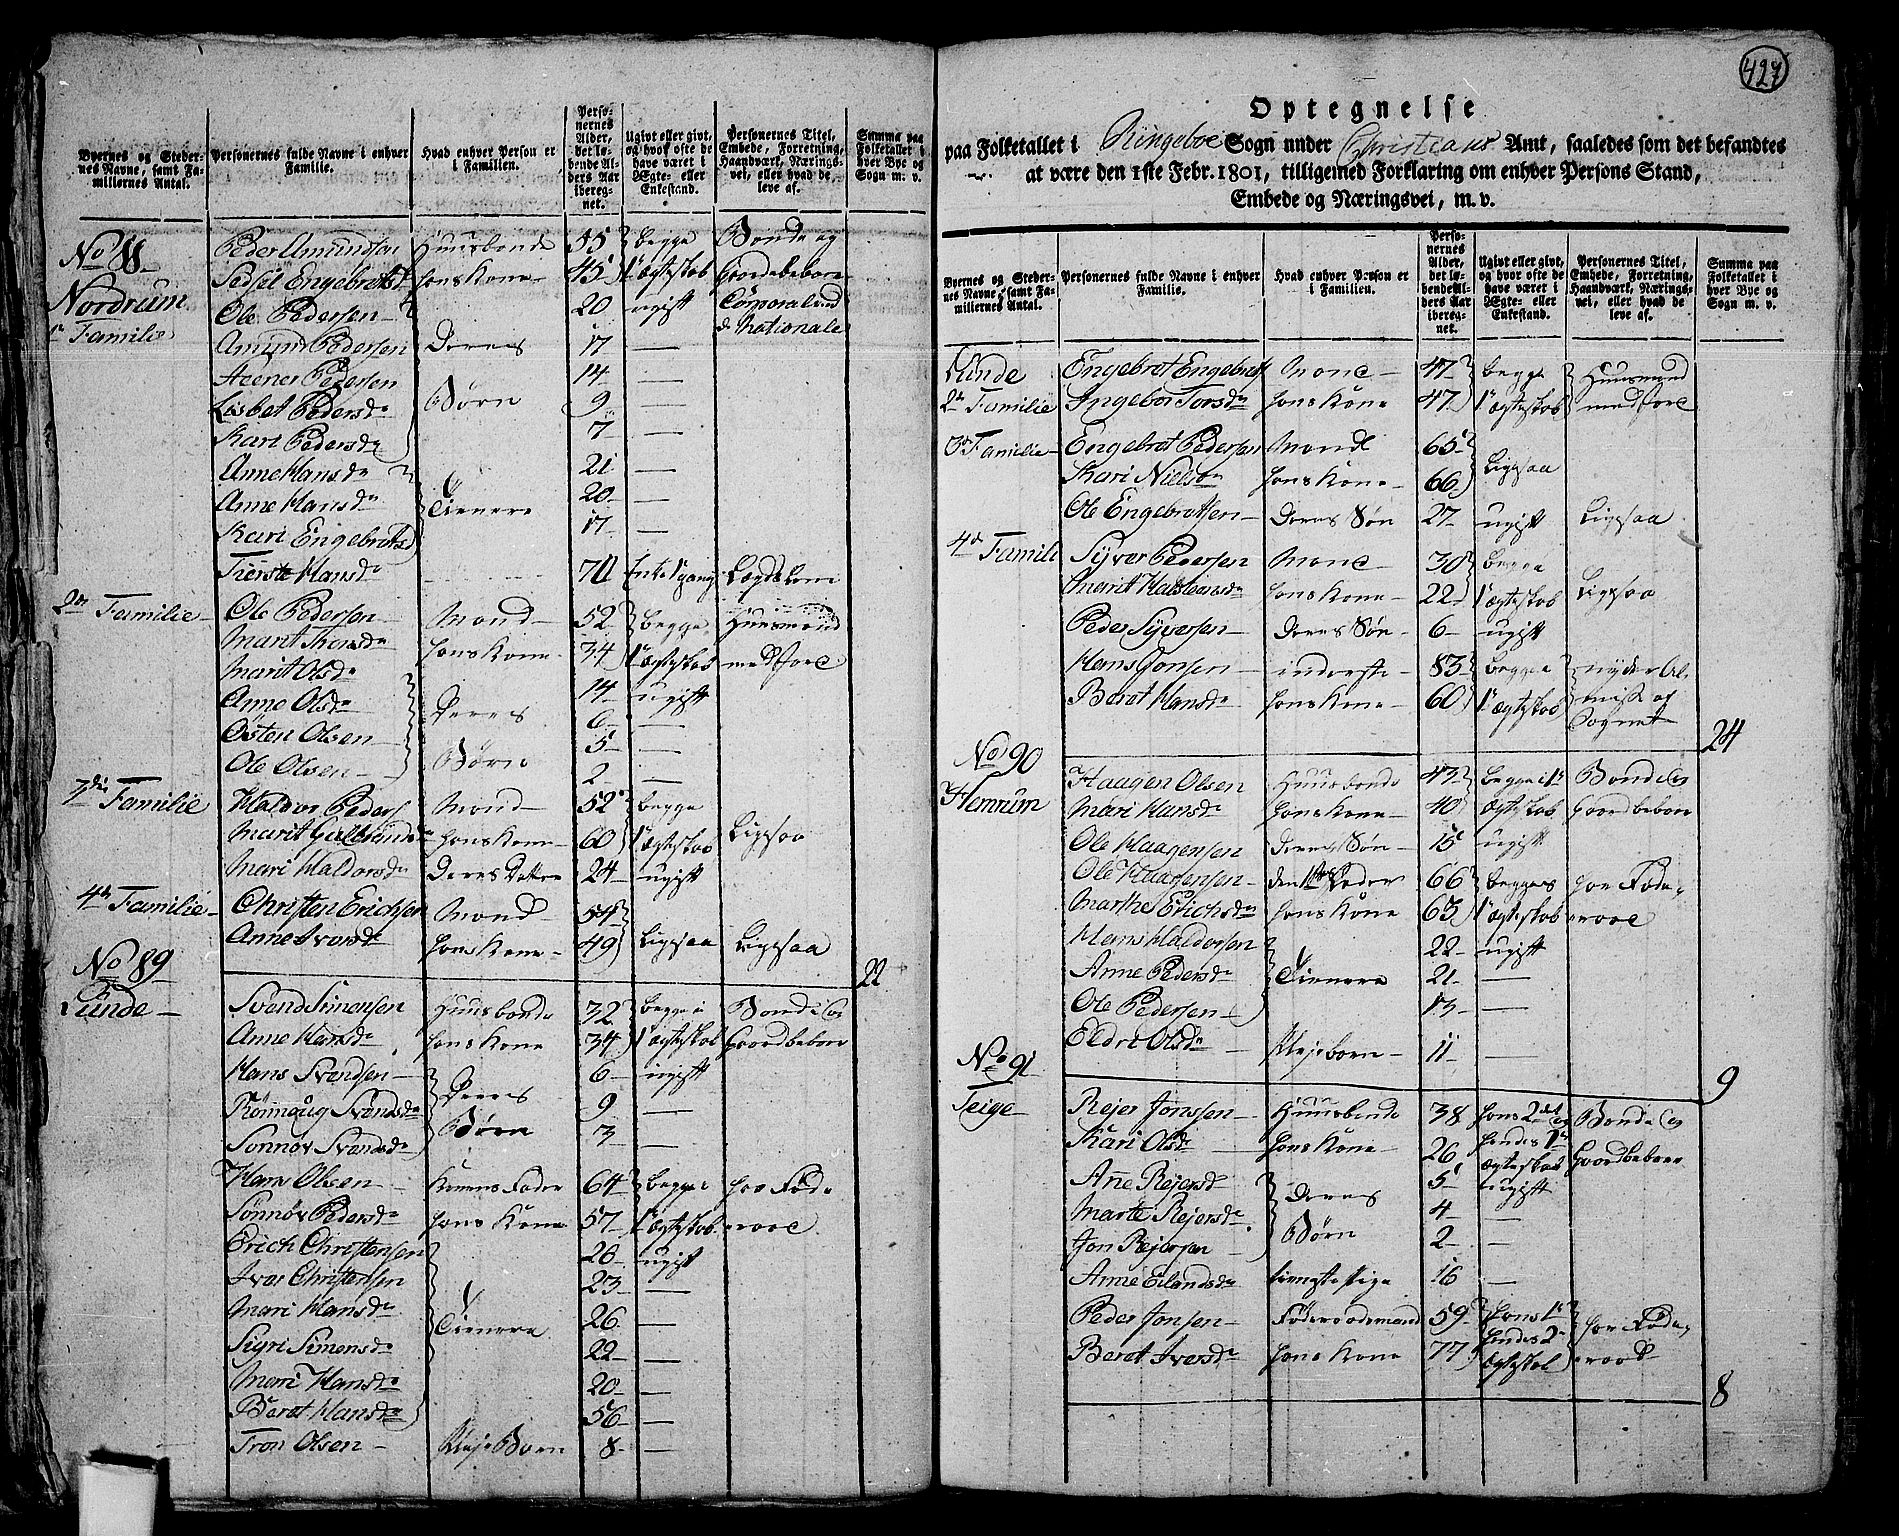 Byernes og Steder- nes Navne, samt Fa- miliernes Antal. | Personernes fulde Navne i enhver Familie. | Hvad enhver Person er i Familien. | Perso- nernes Alder, det lø- bende Al- ders Aar iberegnet. | Ugivt eller givt, og hvor ofte de have været i Ægte- eller Enkestand. | Personernes Titel, Embede, Forretning, Haandværk, Nærings- vei, eller hvad de leve af. | Summa paa Folketallet i hver Bye og Sogn m. v.
No 88 Peder Amundsen Huusbonde 55 begge Bonde og
Sedsel Engebretsdr hans Kone 45 1te ægteskab Gaardbeboer
Nordrum Ole Pedersen 20 ugift Corporal ved
1te Familie Amund Pedersen Deres 17 de Nationale
Steener Pedersen 14 —
Lisbet Pedersdr Børn 9 —
Kari Pedersdr 7 —
Anne Hansdr 21 —
Anne Hansdr Tienere 20 —
Kari Engebretsd 17 —
Tierste Hansdr 70 Enke 1 gang Lægdslem
2den Familie Ole Pedersen Mand 52 begge Huusmand
Marit Thorsdr hans Kone 34 1te ægteskab med Jord
Marit Olsdr 14 ugift
Anne Olsdr Deres 6 —
Østen Olsen 5 —
Ole Olsen Børn 2 —
3die Familie Haldor Peders Mand 52 begge
Marit Gulbrandsdr hans Kone 60 1te ægteskab Ligesaa
Mari Haldorsdr Deres Datter 24 ugift
4de Familie Christen Erichsen Mand 54
Anne Ivarsdr hans Kone 49 Ligesaa Ligesaa
22
No 89
Lunde Svend Simensen Huusbonde 32 begge i Bonde og
Anne Hansdr hans Kone 34 1te ægteskab Gaardbeboer
Hans Svendsen 6 ugift
Rønnaug Svendsdr Deres 9 —
Sønnøv Svendsdr Børn 3 —
Hans Olsen Konens Fader 64 begge har Føde-
Sønnøv Pedersdr hans Kone 57 1te ægteskab raad
Erich Christensen 26 ugift
Ivar Christensen 23 —
Mari Hansdr Tienere 26 —
Sigri Simensdr 22 —
Mari Hansdr 20 —
Berot Hansdr 56 —
Tron Olsen Pleje Barn 8 —
427
Optegnelse
paa Folketallet i Ringeboe Sogn under Christians Amt, saaledes som det befandtes
at være den 1ste Febr. 1801, tilligemed Forklaring om enhver Persons Stand,
Embede og Næringsvei, m. v.
Byernes og Steder- nes Navne, samt Fa- miliernes Antal. | Personernes fulde Navne i enhver Familie. | Hvad enhver Person er i Familien. | Perso- nernes Alder, det lø- bende Al- ders Aar iberegnet. | Ugivt eller givt, og hvor ofte de have været i Ægte- eller Enkestand. | Personernes Titel, Embede, Forretning, Haandværk, Nærings- vei, eller hvad de leve af. | Summa paa Folketallet i hver Bye og Sogn m. v.
Lunde Engebret Engebrets Mand 47 begge Huusmand
2den Familie Ingebor Torsdr hans Kone 47 1te ægteskab med Jord
3die Familie Engebret Pedersen Mand 65
Kari Nielsdr hans Kone 66 Ligesaa
Ole Engebretsen Deres Søn 27 ugift Ligesaa
4de Famili Syver Pedersen Mand 30 begge
Marit Halsteensdr hans Kone 22 1te ægteskab Ligesaa
Peder Syversen Deres Søn 6 ugift
Hans Jonsen inderste 83 begge nyder Al-
Berot Hansdr hans Kone 60 1te ægteskab misse af Sognet
24
No 90
Hemrum Haagen Olsen Huusbonde 43 begge i 1te Bonde og
Mari Hansdr hans Kone 40 ægteskab Gaardbeboer
Ole Haagensen Deres Søn 15 ugift
Ole Haagensen den 1stes Fader 66 begges har Føde-
Marthe Erichsdr hans Kone 63 1te ægteskab raad
Hans Haldorsen 22 ugift
Anne Pedersdr Tienere 21 —
Ole Pedersen 13 —
Eldri Olsdr Plejebarn 11 —
9
No 91
Teige Rejer Jonssen Huusbonde 38 hans 2det og Bonde og
Kari Olsdr hans Kone 26 hendes 1te ægteskab Gaardbeboer
Anne Rejersdr 5 ugift
Marte Rejersdr Deres 4 —
Jon Rejersen Børn 2 —
Anne Erlandsdr tienestepige 16 —
Peder Jonsen Føderaadsmand 59 hans 1te har Føde-
Berot Ivarsdr hans Kone 77 hendes 2det ægteskab raad
8